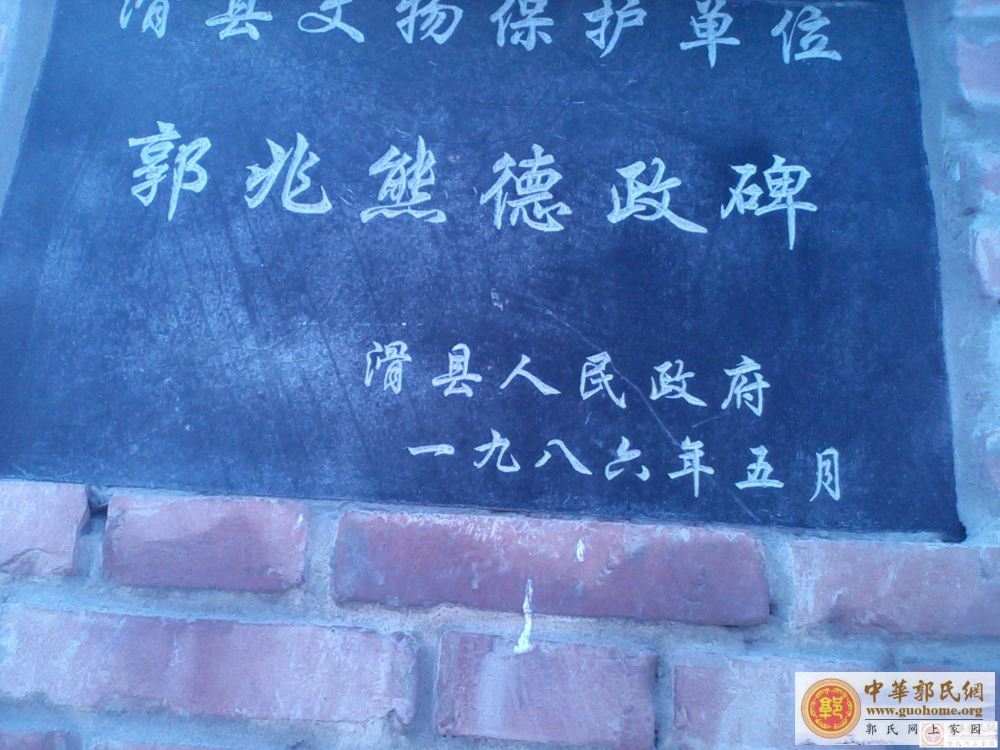 滑县文物保护单位
郭兆熊德政碑
滑县人民政府
一九八六年五月
中華郭氏網
www.guohome.org
郭氏网上家园